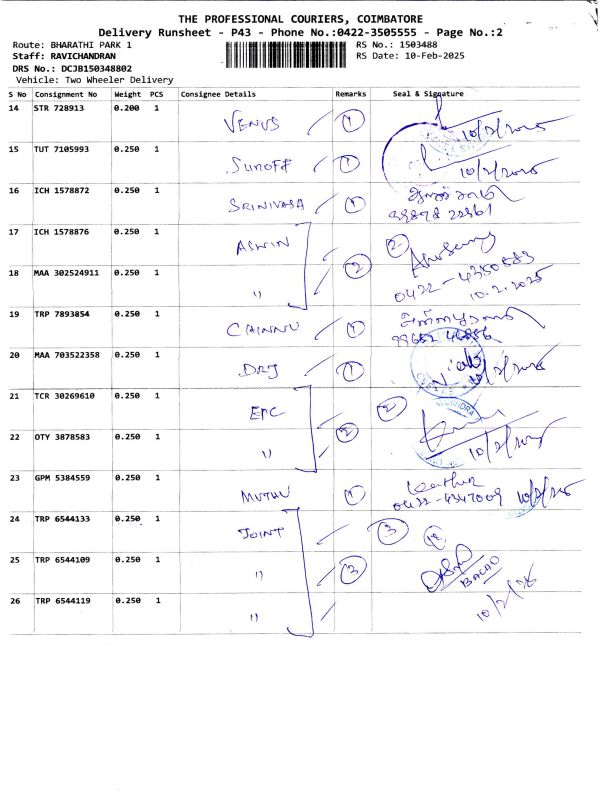 THE PROFESSIONAL COURIERS, COIMBATORE
Delivery Runsheet - P43 - Phone No.:0422-3505555 - Page No.:2
Route: BHARATHI PARK 1 RS No.: 1503488
Staff: RAVICHANDRAN RS Date: 10-Feb-2025
DRS No.: DCJB150348802
Vehicle: Two Wheeler Delivery
S No Consignment No Weight PCS Consignee Details Remarks Seal & Signature
14 STR 728913 0.200 1 VENUS 1 10/2/2025
15 TUT 7105993 0.250 1 SUNOFF 1 10/2/2025
16 ICH 1578872 0.250 1 SRINIVASA 1
17 ICH 1578876 0.250 1 ASWIN 2 2
18 MAA 302524911 0.250 1 " 0422-4350583
10.2.2025
19 TRP 7893854 0.250 1 CHINNU 1
99652 46886
20 MAA 703522358 0.250 1 DRJ 1 10/2/2025
21 TCR 30269610 0.250 1 EPC 2 2
22 OTY 3878583 0.250 1 " 10/2/2025
23 GPM 5384559 0.250 1 MUTHU 1 0422-4347009 10/2/25
24 TRP 6544133 0.250 1 JOINT 3 3
25 TRP 6544109 0.250 1 "
26 TRP 6544119 0.250 1 " 10/2/25